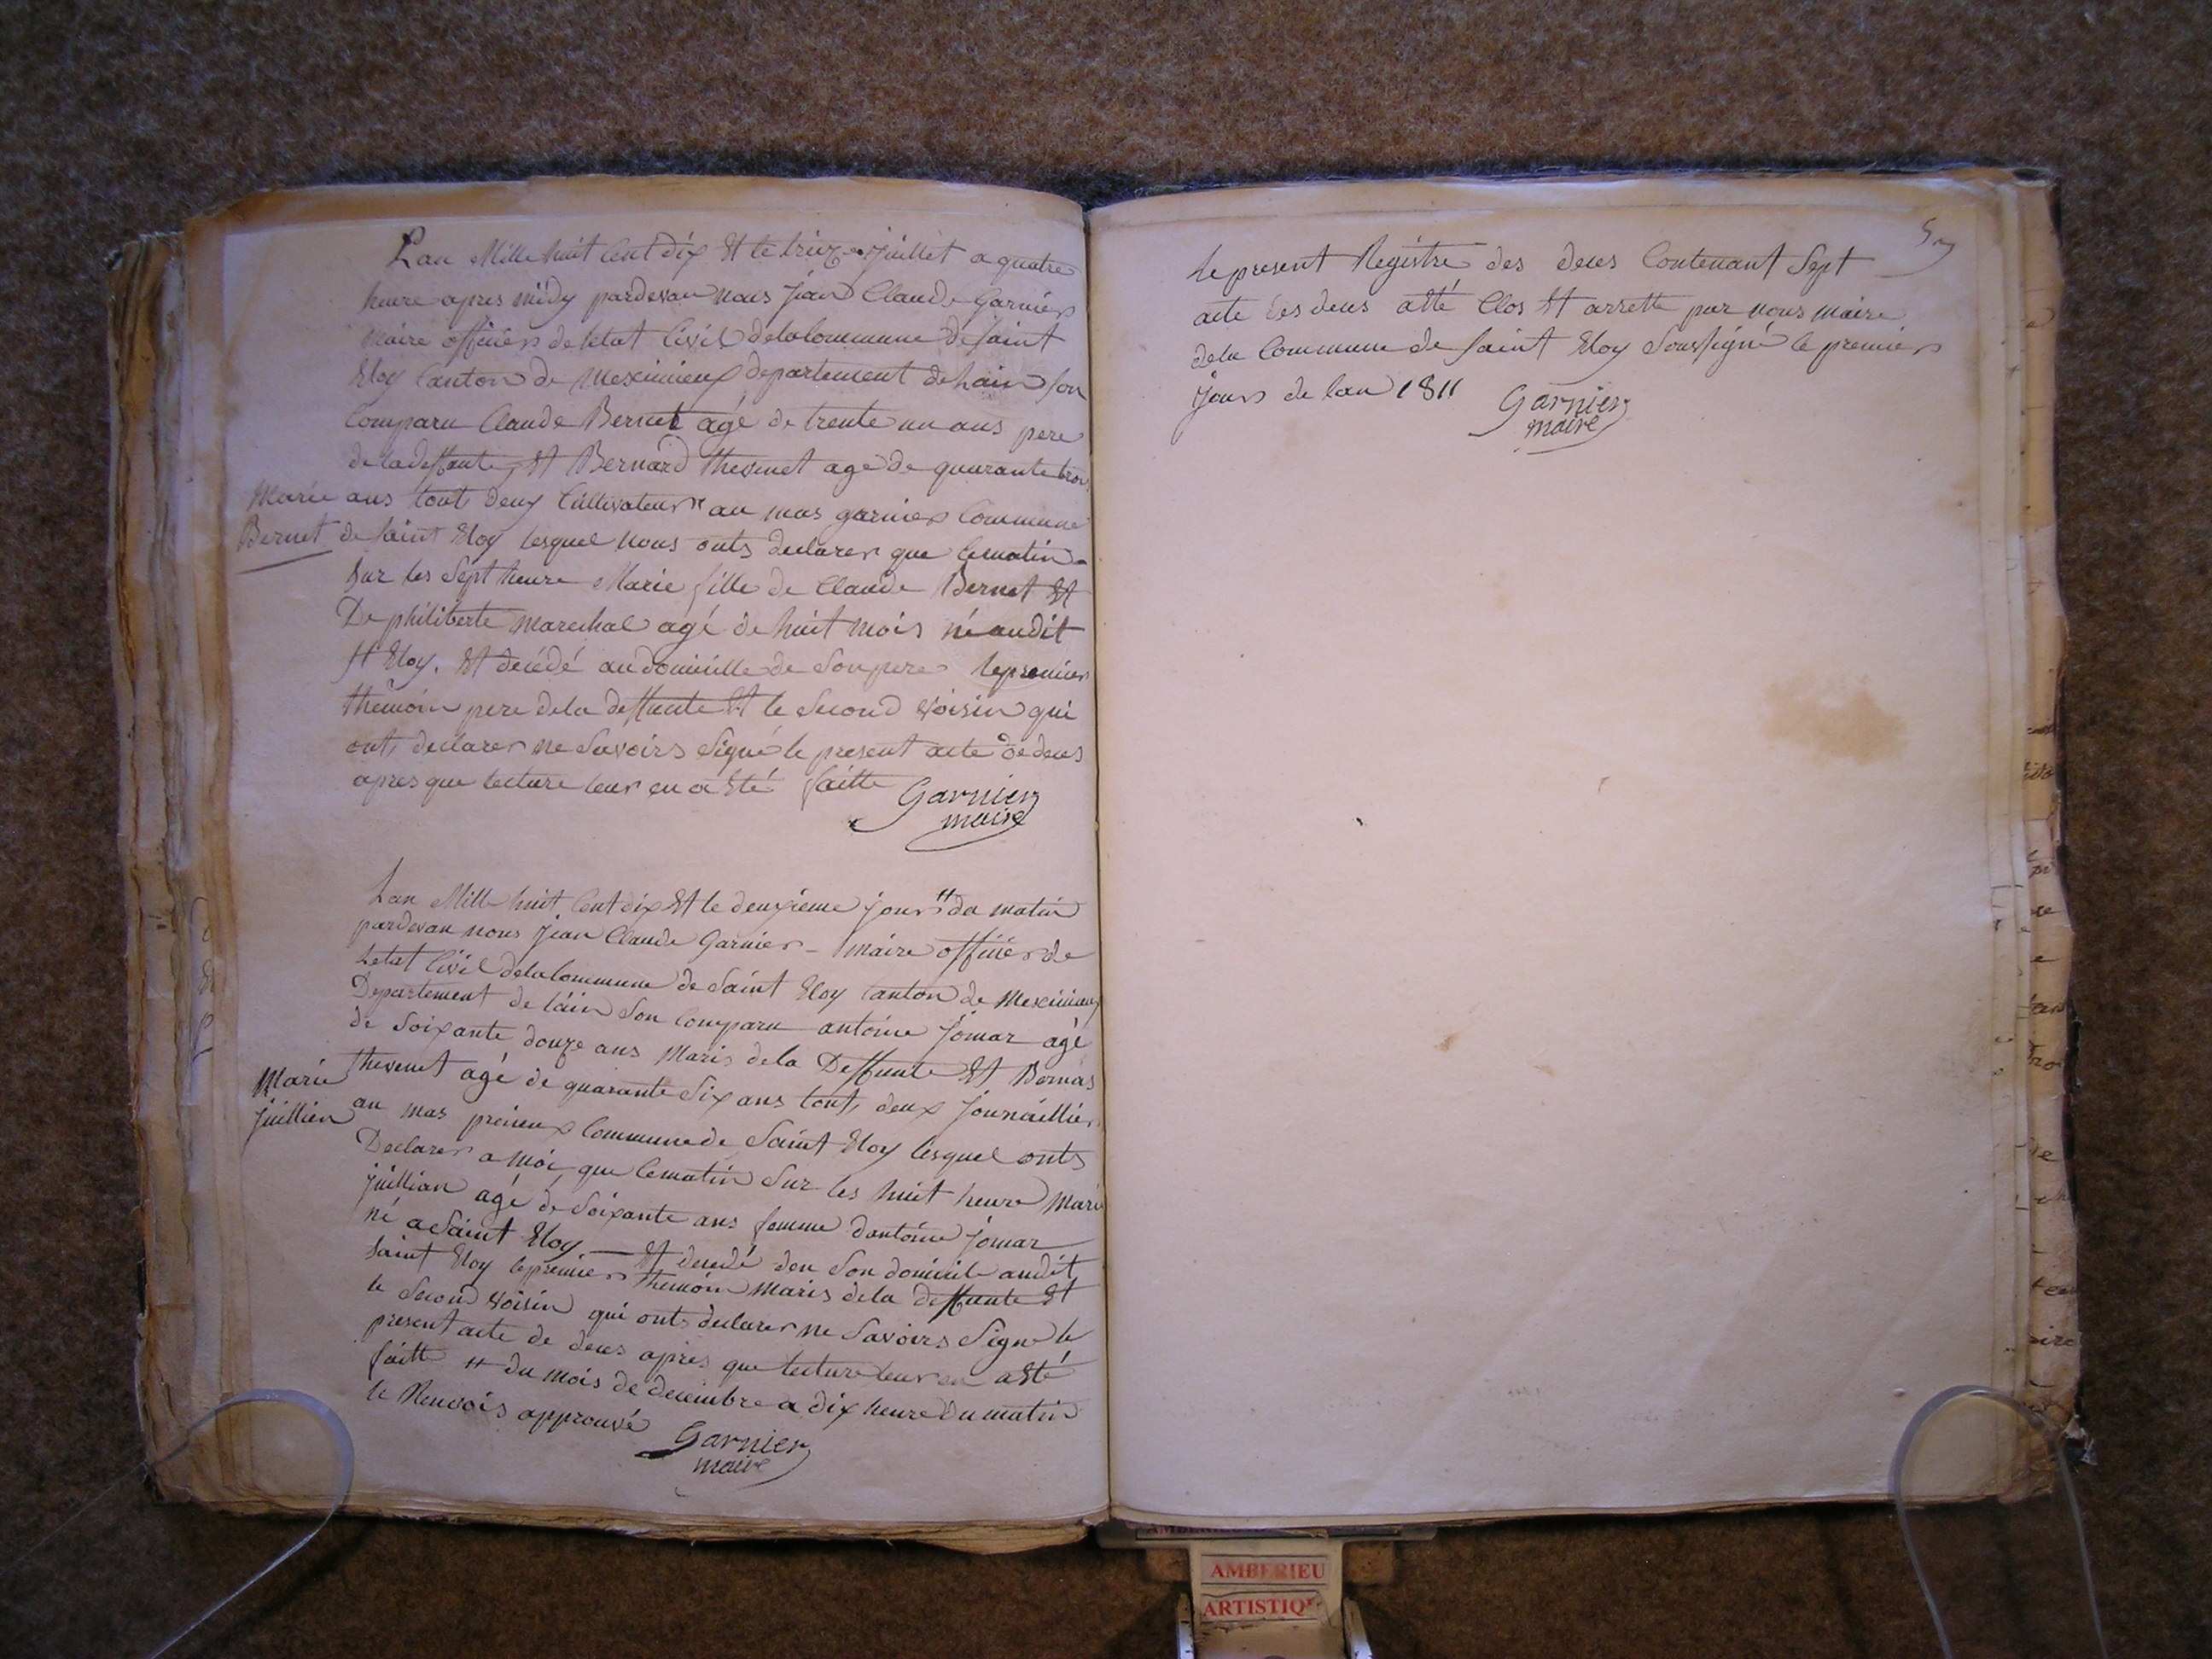 Lan Mille huit Cent dix Et le treize Juillet a quatre
heure apres midy pardevan nous Jean Claude Garnier
Maire officier de letat Civil dela Commune de saint
Eloy Canton de Meximieux departement de Lain son
Comparu Claude Bernet agé de trente un ans pere
de la deffunte, Et Bernard thevenet age de quarante trois
Marie
Bernet
ans tout deux Cultivateur au mas garnier Commune
de Saint Eloy lesquel nous onts declarer que Cematin
Sur les Sept heure Marie fille de Claude Bernet Et
De philiberte Marechal agé de huit Mois né audit
St Eloy. Et decédé au domicille de Son pere le premier
themoin pere dela deffunte Et le Second Voisin qui
ont declarer ne Savoirs Signé le present acte de deces
apres que lecture leur en a Eté faitte
Garnier
maire
Lan Mille huit Cent dix Et le deuxieme jour " du matin
pardevan nous Jean Claude Garnier - Maire officier de
Letat Civil dela Commune de Saint Eloy Canton de Meximieux
Departement de lain Son Comparu antoine Jomar agé
de Soixante douze ans Maris dela Deffunte Et Bernas
Marie
Juillien
thevenet agé de quarante Six ans tout deux journaillier
au mas prenieux Commune de Saint Eloy lesquel onts
Declarer a Moi que Cematin Sur les huit heure Marie
juillian agé de Soixante ans femme dantoine jomar
né a Saint Eloy — Et decedé den Son domicile audit
Saint Eloy le premier themoin Maris dela deffunte Et
le Second Voisin qui onts declarer ne Savoirs Signe le
present acte de deces apres que lecture leur en a Eté
faitte " du mois de decembre a dix heure Du matin
le Renvois approuvé
Garnier
maire
le present Registre des deces Contenant Sept
acte des deces atté Clos Et arretté par nous maire
dela Commune de Saint Eloy Soussigné le premier
jours de lan 1811
Garnier
maire
AMBERIEU
ARTISTIQ